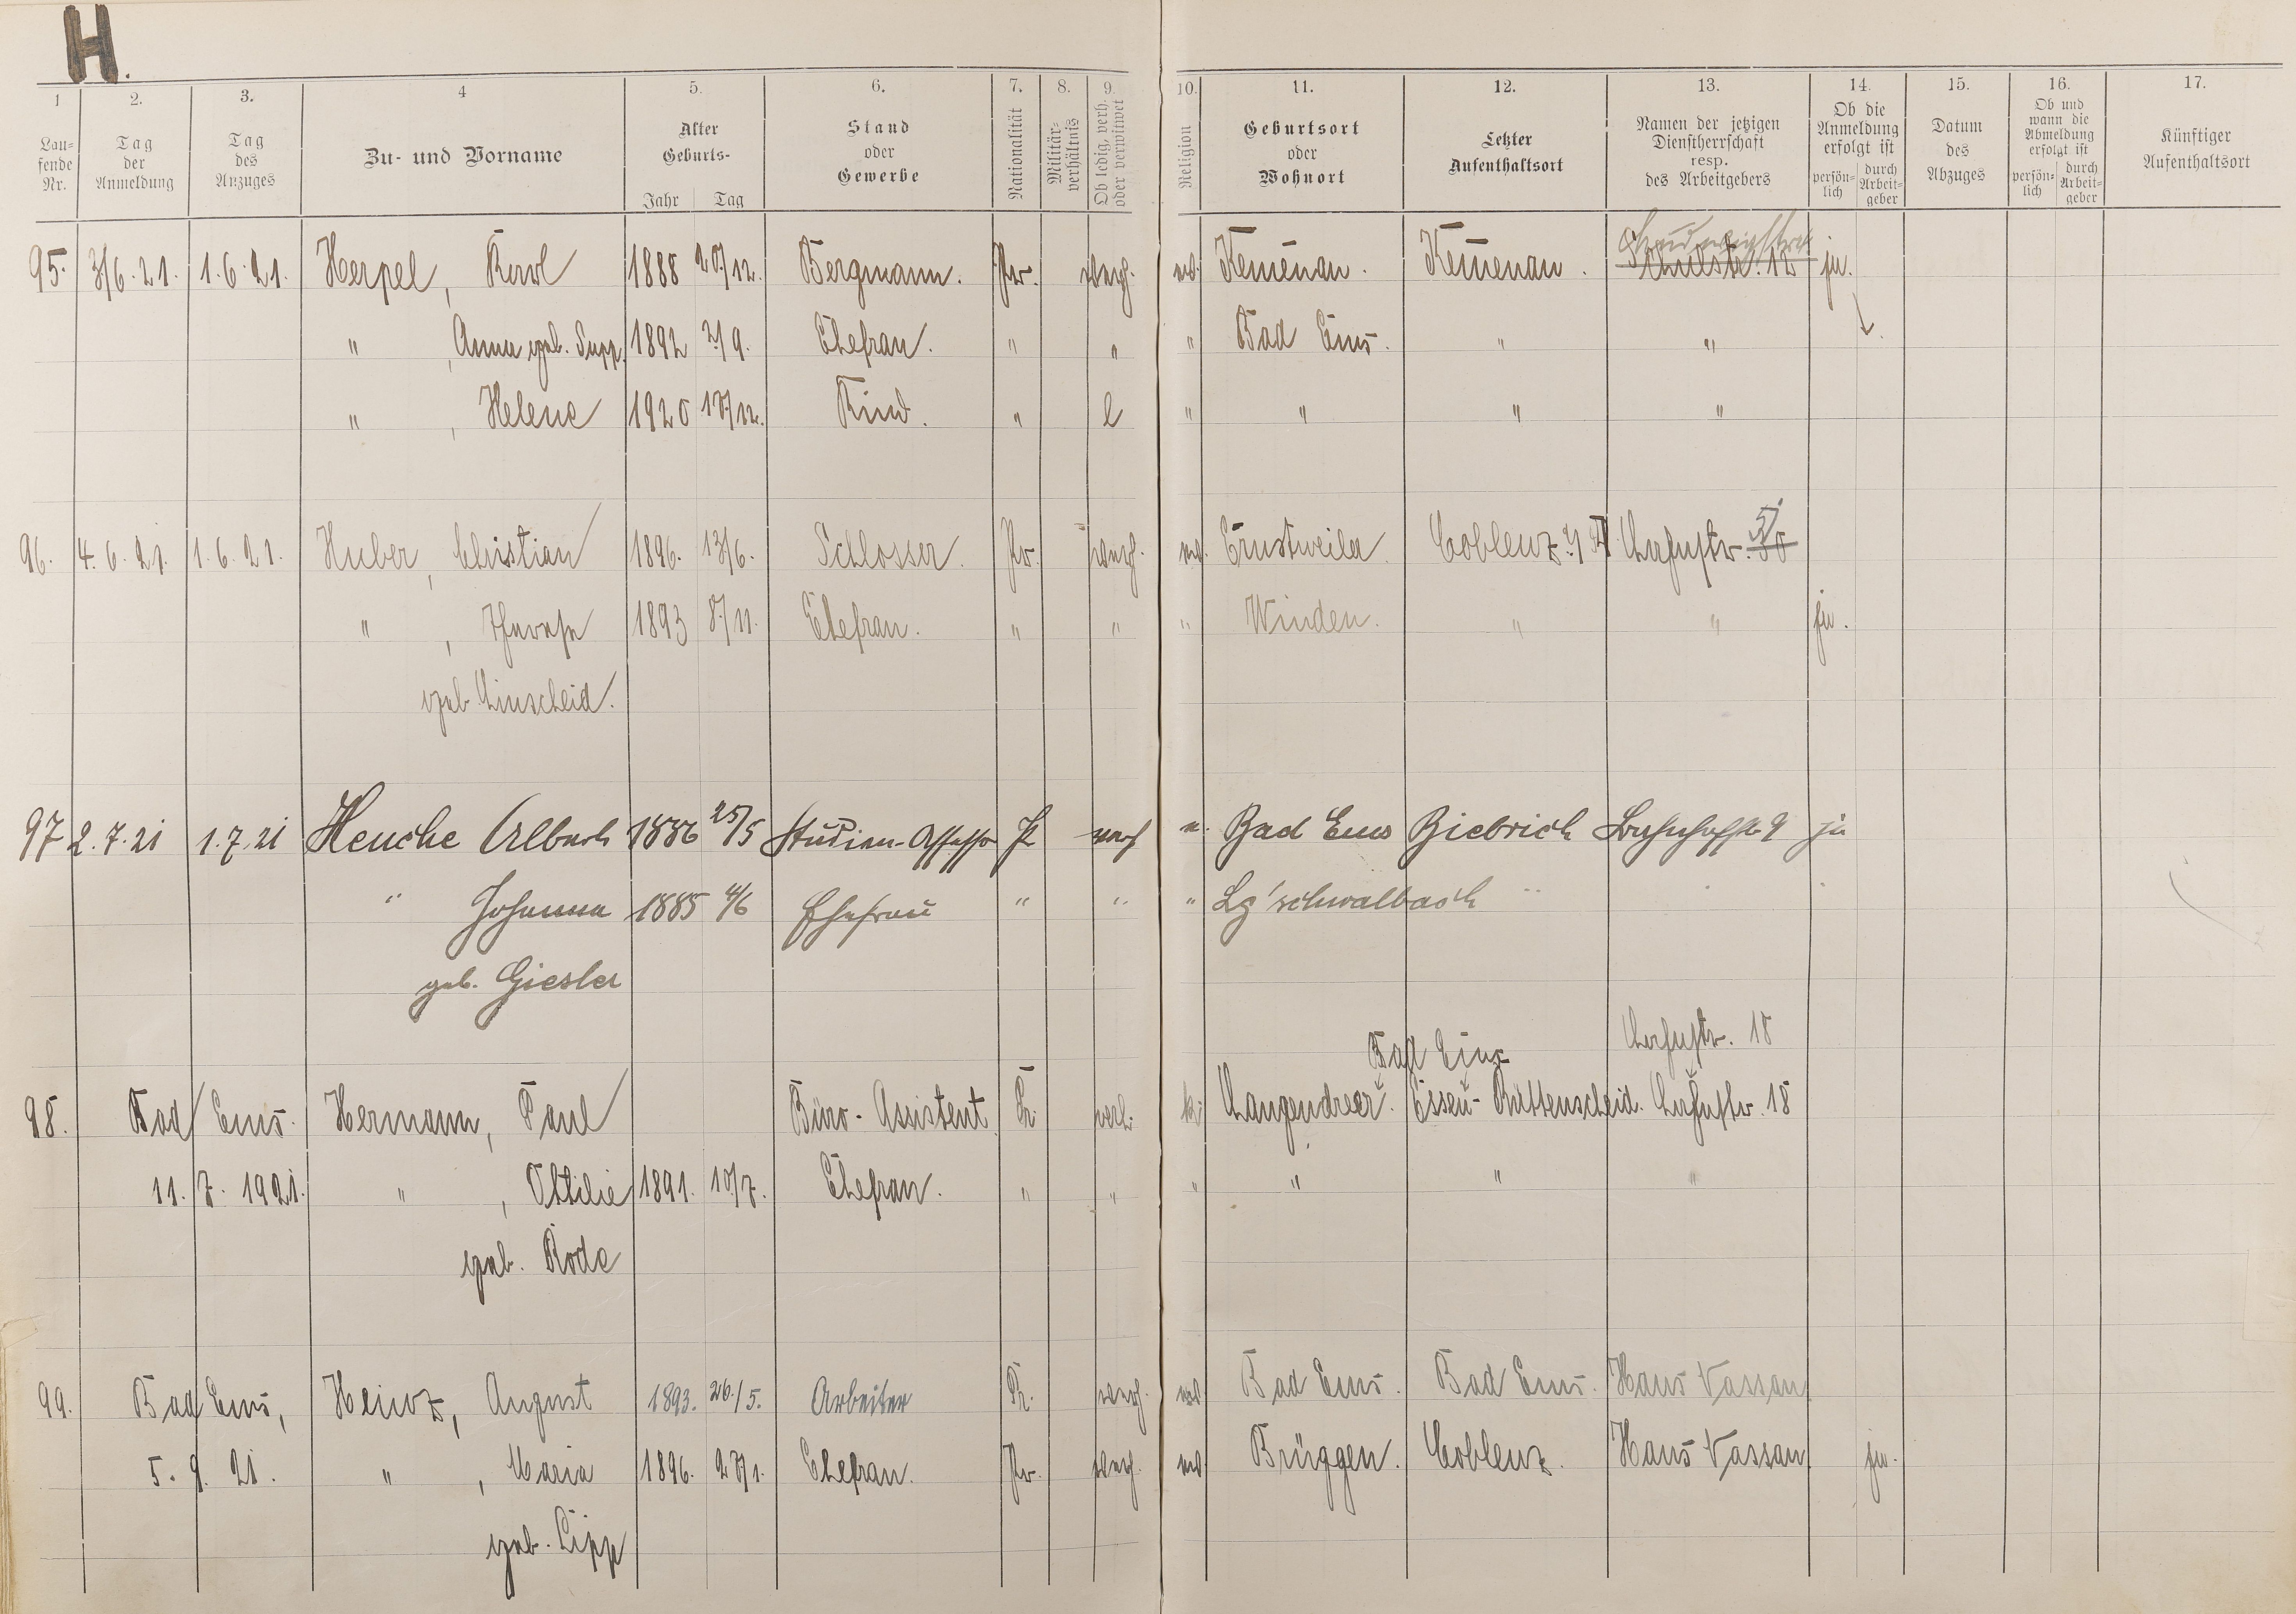 H.
1 2. 3. 4 5. 6. 7. 8. 9. 10. 11. 12. 13. 14. 15. 16. 17.
Lau-
fende
Nr.
Tag
der
Anmeldung
Tag
des
Anzuges
Zu- und Vorname
Alter
Geburts-
Jahr Tag
Stand
oder
Gewerbe
Nationalität
Militär-
verhältnis
Ob ledig, verh.
oder verwitwet
Religion
Geburtsort
oder
Wohnort
Letzter
Aufenthaltsort
Namen der jetzigen
Dienstherrschaft
resp.
des Arbeitgebers
Ob die
Anmeldung
erfolgt ist
persön-
lich
durch
Arbeit-
geber
Datum
des
Abzuges
Ob und
wann die
Abmeldung
erfolgt ist
persön-
lich
durch
Arbeit-
geber
Künftiger
Aufenthaltsort
95. 3/6.21. 1.6.21. Herpel, Karl 1888 20/12. Bergmann. Pr. verh. Kemenau. Kemenau. Schulstr. 12 ja.
" , Anna geb. 1892 2/9. Ehefrau. " " " Bad Ems. " "
" , Helene 1920 17/12. Kind. " l " " " "
96. 4.6.21. 1.6.21. Huber, Christian 1896. 13/6. Schlosser. Pr. verh. Ernstweiler Coblenz Lahnstr. 50
" , 1893 8/11. Ehefrau. " " " Winden. " " ja.
geb. Linscheid.
97 2.7.21 1.7.21 Heuche Albert 1886 25/5 Studien-Assessor Pr verh Bad Ems Biebrich Bahnhofstr 9 ja
" Johanna 1885 4/6 Ehefrau " " " Lg'schwalbach "
geb. Giesler
Bad Ems Lahnstr. 18
98. Bad Ems. Hermann, Paul Büro-Assistent Pr. verh. Langendreer. Essen-Rüttenscheid. Lahnstr. 18
11.7.1921. " , Ottilie 1891. 10/7. Ehefrau. " " " " " "
geb. Rode
99. Bad Ems, Heinz, August 1893. 26./5. Arbeiter Pr. verh. Bad Ems. Bad Ems. Haus Nassau
5.9.21. " , Maria 1896. 27/1. Ehefrau. Pr. verh. Brüggen. Coblenz. Haus Nassau ja.
geb. Lipp